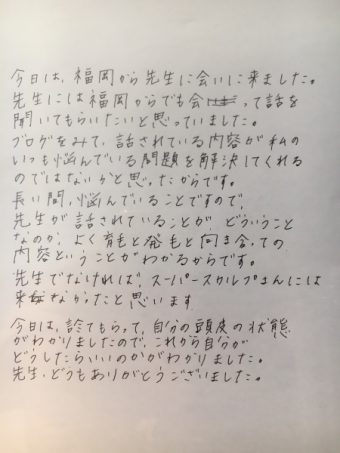 今日は、福岡から先生に会いに来ました。
先生には福岡からでも会って話を
聞いてもらいたいと思っていました。
ブログをみて、話されている内容が私の
いつも悩んでいる問題を解決してくれる
のではないかと思ったからです。
長い間、悩んでいることですので、
先生が話されていることが、どういうこと
なのか、よく育毛と発毛と向き合っての
内容ということがわかるからです。
先生でなければ、スーパースカルプさんには
来なかったと思います
今日は、診てもらって、自分の頭皮の状態
がわかりましたので、これから自分が
どうしたらいいのかがわかりました。
先生、どうもありがとうございました。